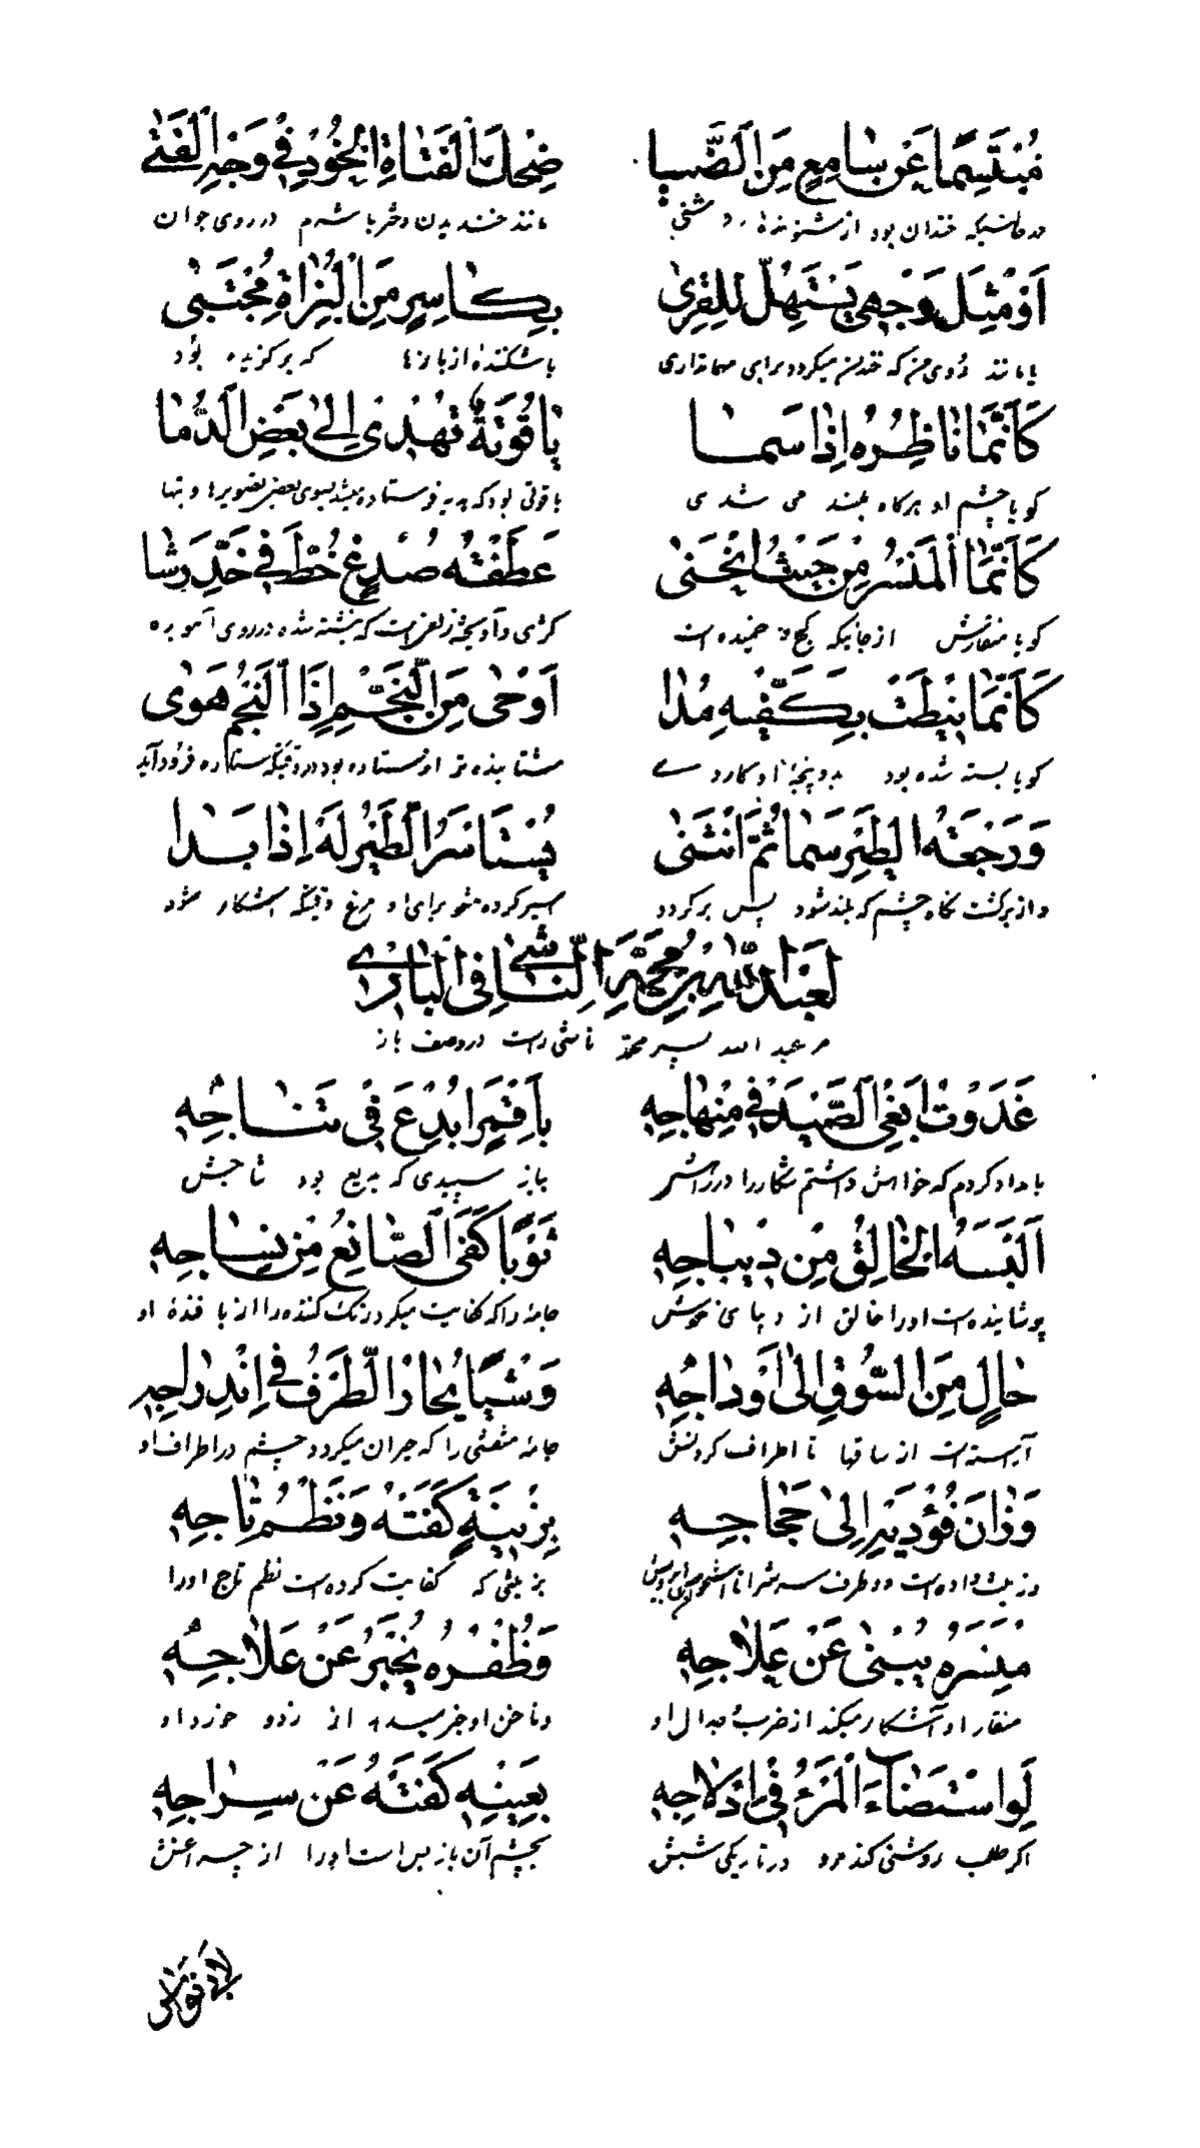 مُبْتَسِمًا عَنْ سامِعٍ مِنَ الضَّبا ضِحْكَ الفَتَاةِ الخُوْدِ فِي وَجْهِ الفَتٰى
خندان بود از شنونده مانند خندیدن دختر با شرم در روی جوان
اَوْ مِثْلَ وَجْهِي يَسْتَهِلُّ لِلقِرىٰ بِكاسِرٍ مِنَ البُزاةِ مُجْتَبىٰ
یا مانند روی من که خندان میکردد برای مهمانداری با شکننده از بازها که برکزیده بود
كَأَنَّما ناظِرُهُ اِذا سَما ياقُوتَةٌ تُهْدىٰ اِلىٰ بَعْضِ الدُّما
کویا چشم او هرکاه بلند می شدی یاقوتی بود که هدیه فرستاده میشد بسوی بعض تصویرها و بتها
كَأَنَّما المَنْسِرُ مِنْ حَيْثُ انْحَنىٰ عَطْفَةُ صُدْغٍ خُطَّ في خَدِّ رَشا
کویا منقارش از جائیکه کج و خمیده است کژی و آویخته زلف است که نبشته شده در روی آهو بره
كَأَنَّما نِيْطَتْ بِكَفَّيْهِ مُدا اَوْحىٰ مِنَ النَّجْمِ اِذَا النَّجْمُ هَوىٰ
کویا بسته شده بود بدو پنجهٔ او کارد شتابنده تر از ستاره بود در وقتیکه ستاره فرود آید
وَرَجْعَةُ الطَّيْرِ سَما ثُمَّ انْثَنىٰ يُسْتَاسَرُ الطَّيْرُ لَهُ اِذا بَدا
و از برکشت نکاه چشم که بلند شود پس برکردد اسیر کرده شود برای او مرغ وقتیکه آشکار شود
لِعَبْدِ اللّٰهِ بْنِ مُحَمَّدٍ النّاشِي فِي البازي
مر عبد الله پسر محمد ناشی راست در وصف باز
غَدَوْتُ اَبْغِي الصَّيْدَ في مِنْهاجِهِ بِاَقْمَرٍ اُبْدِعَ في نَتاجِهِ
بامداد کردم که خواهش داشتم شکار را در راهش بباز سپیدی که بدیع بود نتاجش
اَلْبَسَهُ الخالِقُ مِنْ دِيباجِهِ ثَوْبًا كَفَى الصّانِعَ مِنْ نِساجِهِ
پوشانیده است او را خالق از دیبای خوش جامهٔ را که کفایت میکرد رنک کننده را از بافندهٔ او
حالٍ مِنَ السُّوقِ اِلىٰ اَوْداجِهِ وَشْيًا يُحارُ الطَّرْفُ في اِنْدِراجِهِ
آراسته است از ساقها تا اطراف کردنش جامهٔ منقشی را که حیران میکردد چشم در اطراف او
وَزانَ فَوْدَيْهِ اِلىٰ حَجاجِهِ بِزِيْنَةٍ كَفَتْهُ وَنَظْمُ تاجِهِ
و زینت داده است دو طرف سرش را تا استخوان بزینتی که کفایت کرده است نظم تاج او را
مَنْسِرُهُ يُبْنىٰ عَنْ عِلاجِهِ وَظُفْرُهُ يُخْبِرُ عَنْ عَلاجِهِ
منقار او آشکار میکند از ضرب و جدال او و ناخن او خبر میدهد از زد و خورد او
لَوِ اسْتَضاءَ المَرْءُ في اِدْلاجِهِ بِعَيْنِهِ كَفَتْهُ عَنْ سِراجِهِ
اکر طلب روشنی کند مرد در تاریکی شبش بچشم آن باز بس است او را از چراغش